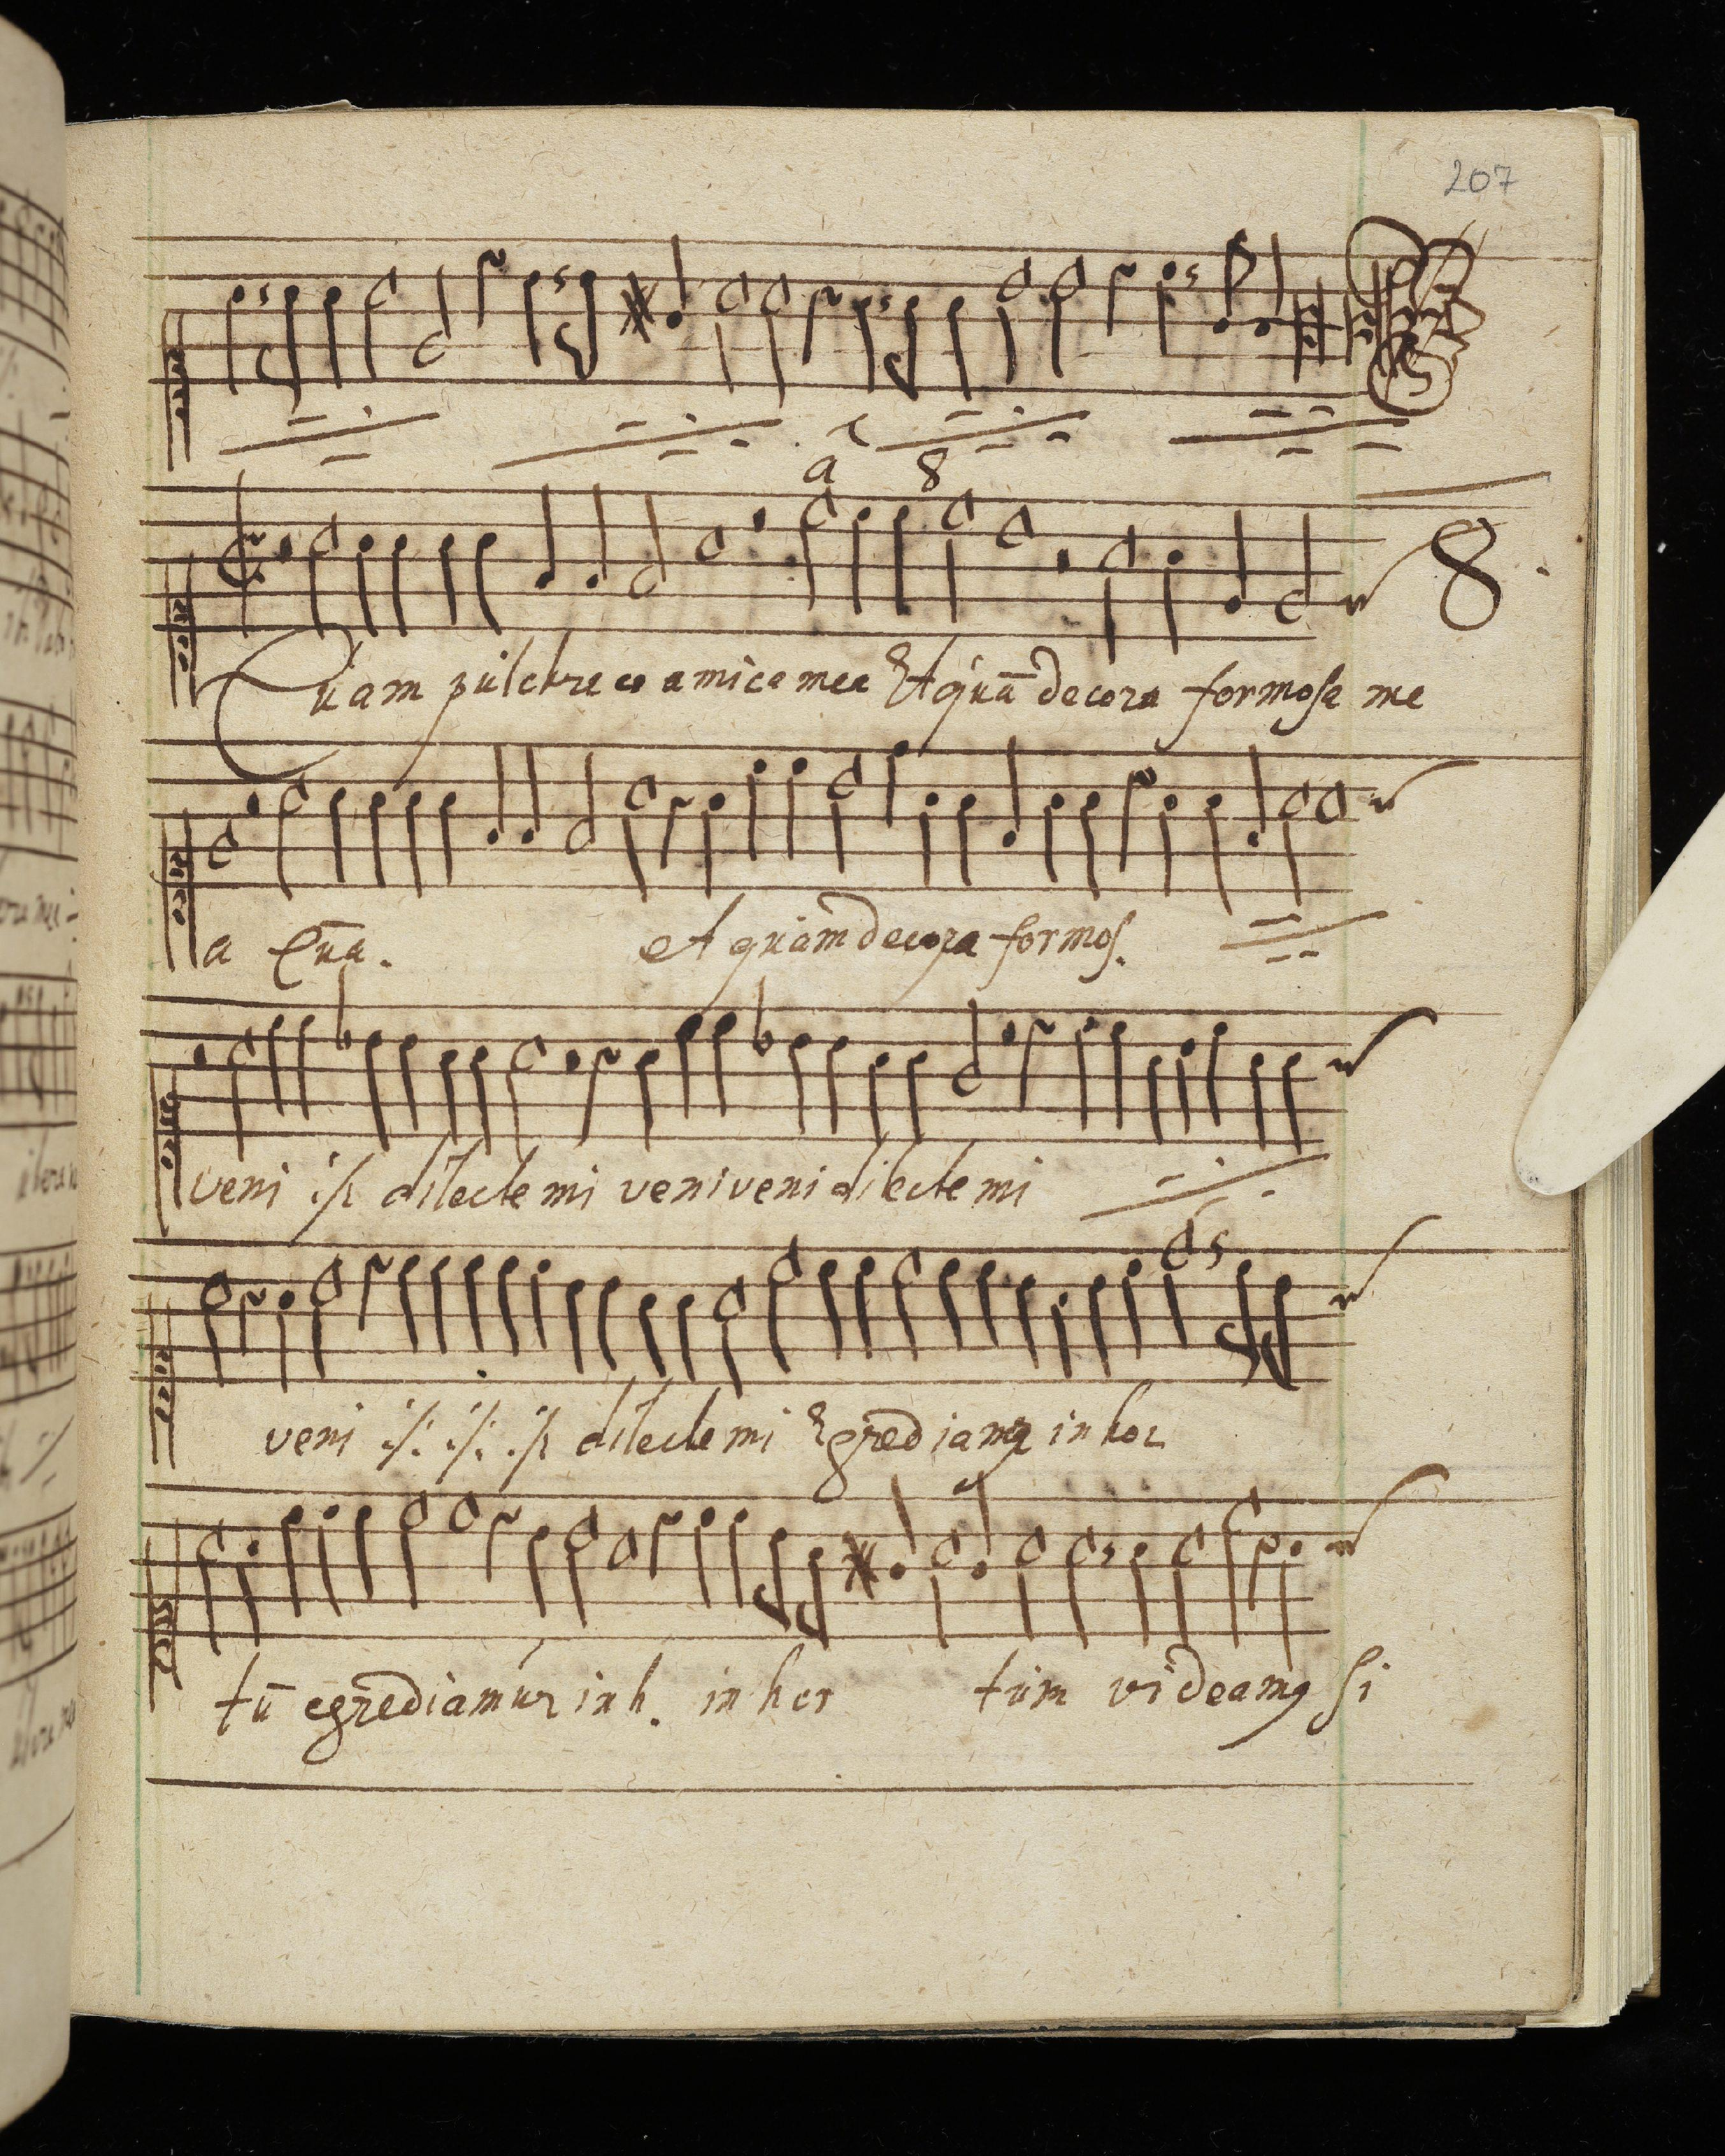 207
a 8
8.
Quam pulchra es amica mea Et quā decora formosa me
a Quā. et quam decora formos.
veni :/: dilecte mi veni veni dilecte mi
veni :/: :/: :/: dilecte mi Egrediamur in hor
tū egrediamur in h. in hor tum videamꝰ si